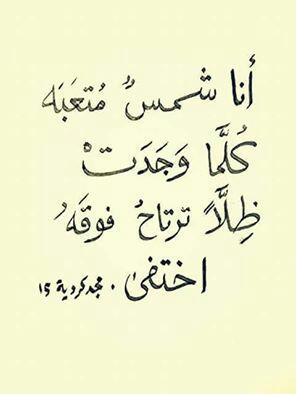 أنا شمسٌ مُتعبَه
كُلَّما وَجَدَتْ
ظِلَّاً ترتاحُ فوقَهُ
اختفىٰ . مجد كردية ١٥